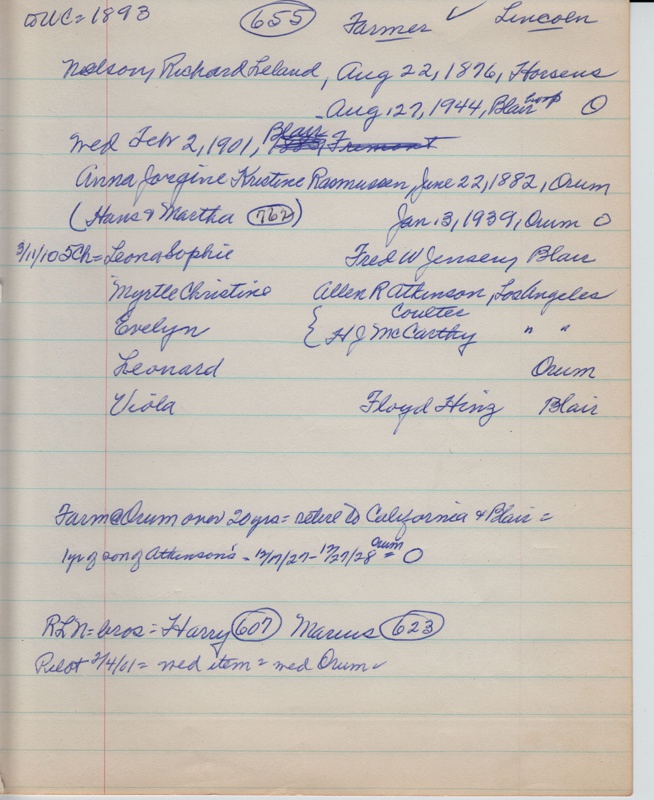 WC=1893 655 Farmer ✓ Lincoln
Nelson, Richard Leland, Aug 22, 1876, Horsens
- Aug 27, 1944, Blair hosp O
Wed Feb 2, 1901, Blair
Anna Jorgine Kristine Rasmussen, June 22, 1882, Orum
(Hans & Martha 762) Jan 13, 1939, Orum O
3/11/10 5Ch = Leona Sophie Fred W Jensen, Blair
Myrtle Christine Allen R Atkinson, Los Angeles
Coulter
Evelyn { H J McCarthy " "
Leonard Orum
Viola Floyd Hinz Blair
Farm @ Orum over 20 yrs = retire to California & Blair =
1 yr old son of Atkinson's - 12/27/28 Orum = O
RLN = bros = Harry 607 Marius 623
Pilot 2/14/01 = wed item = wed Orum